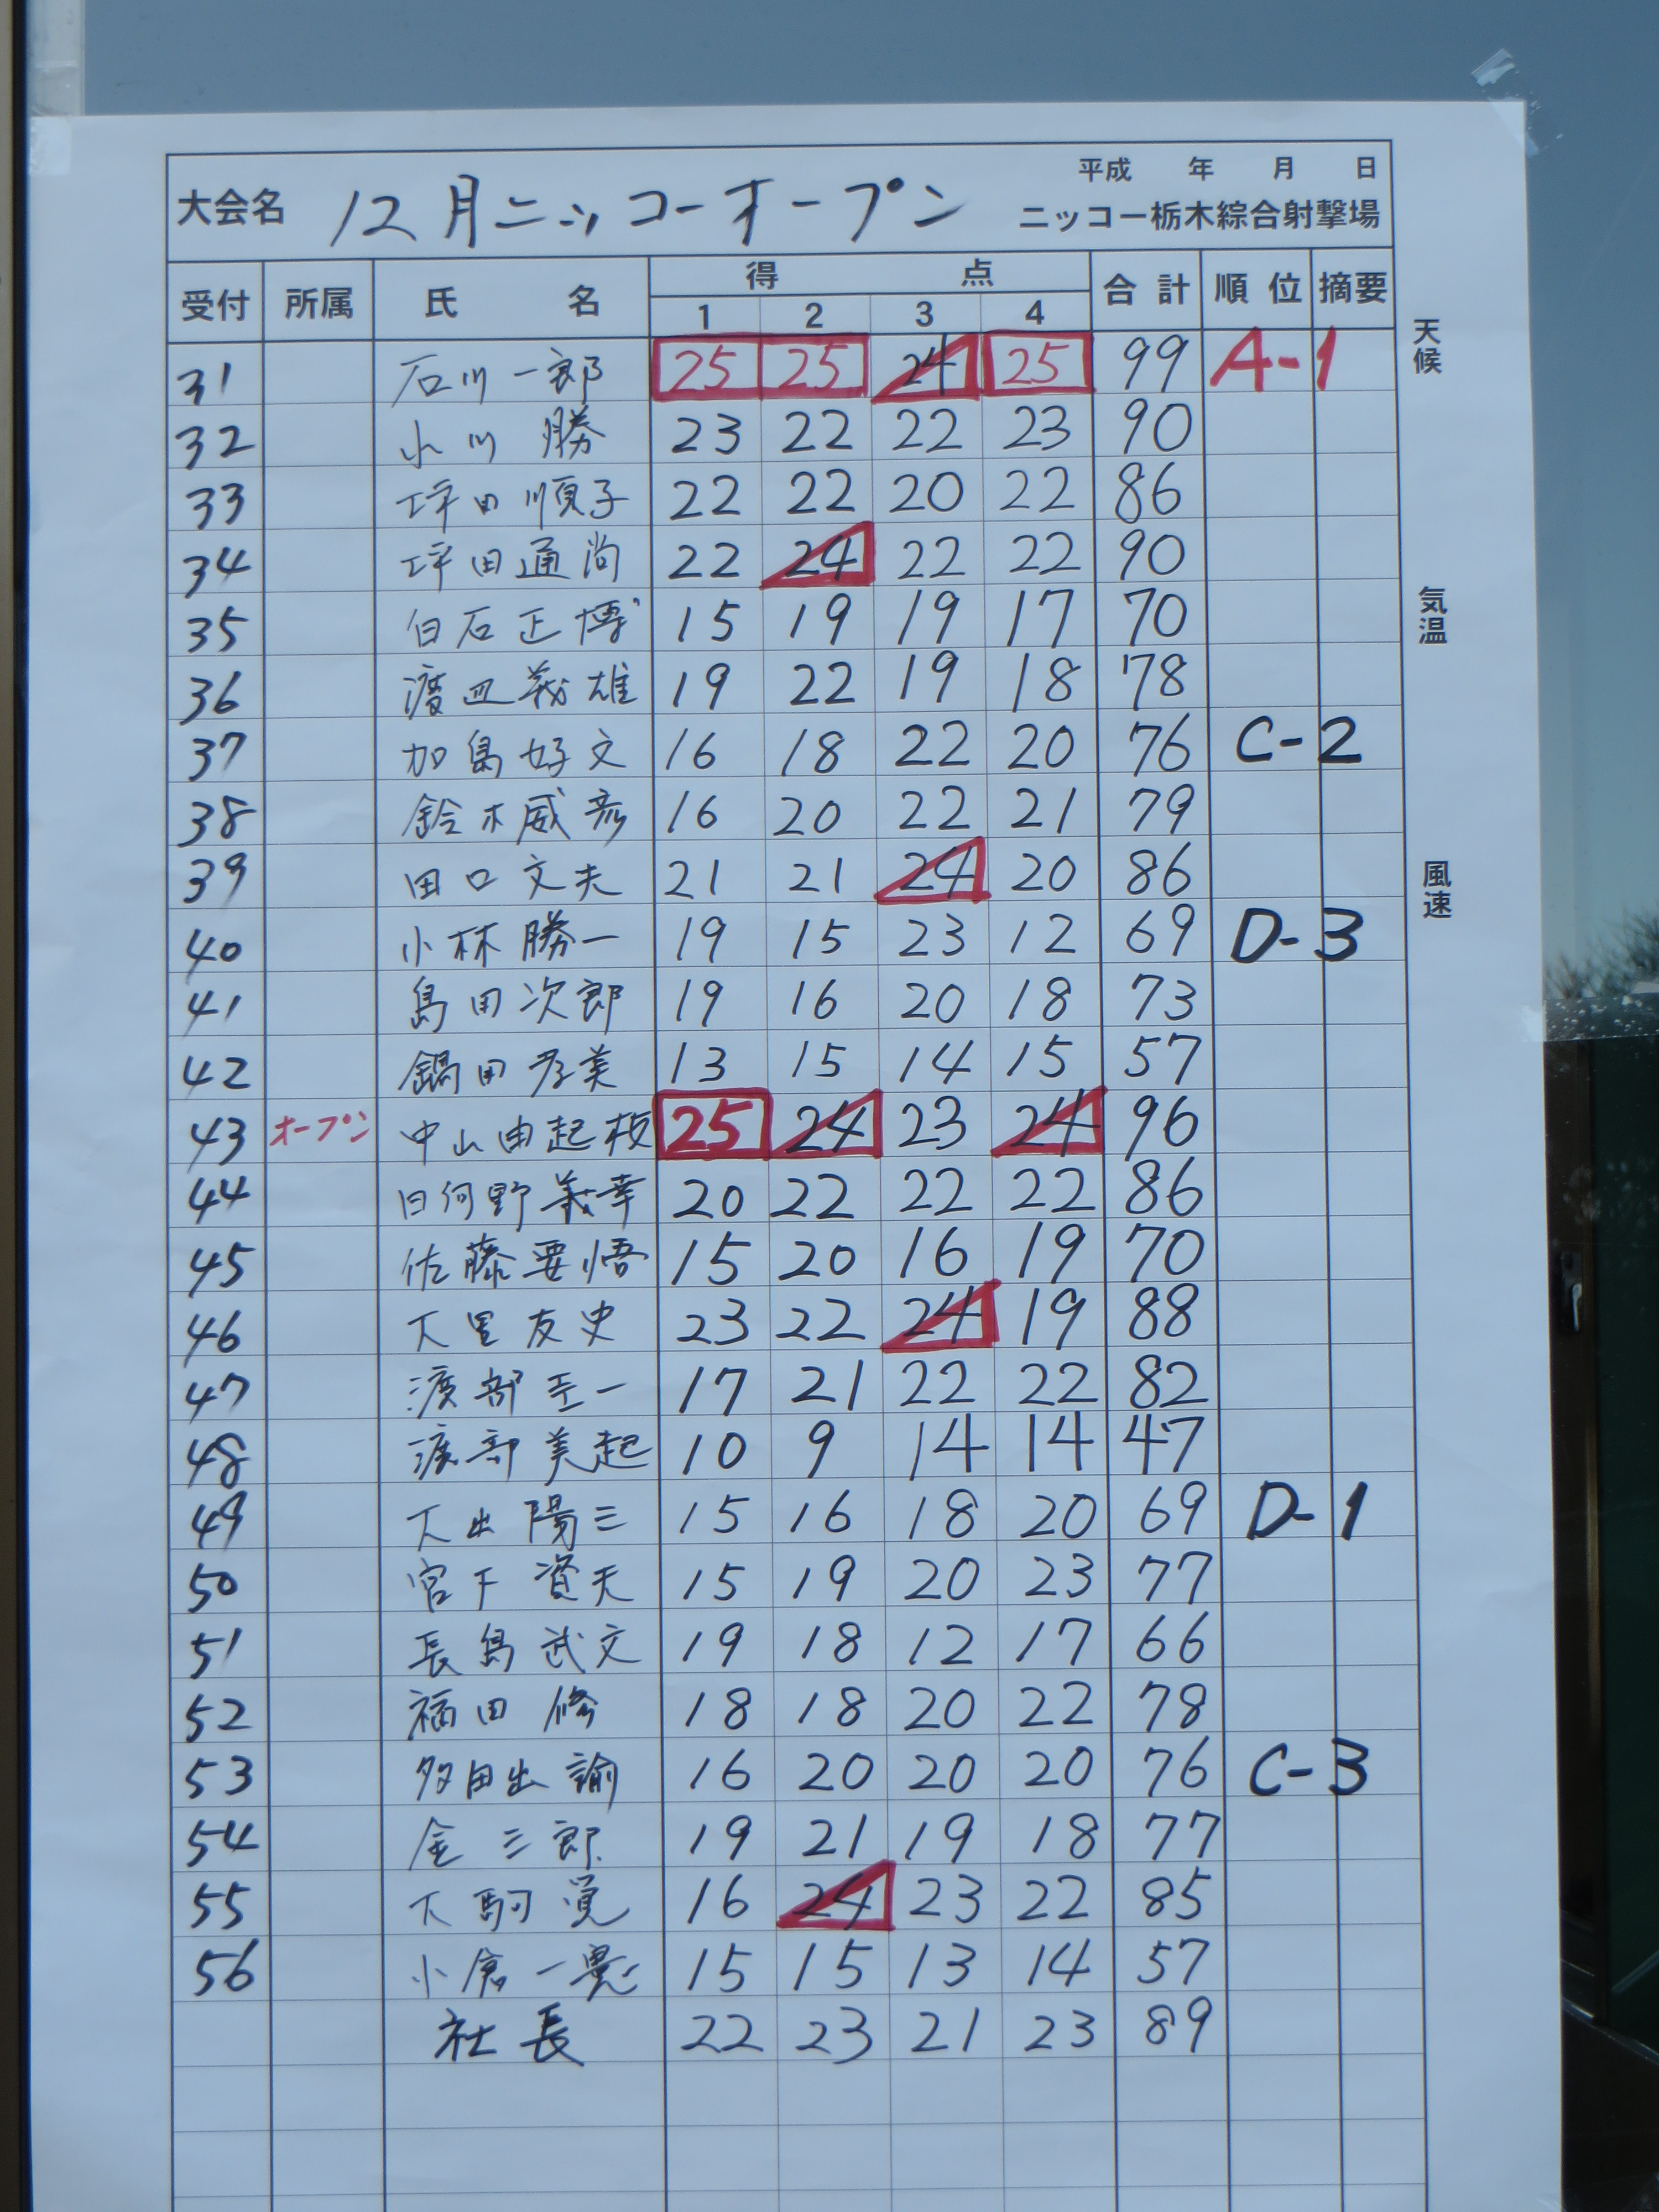 平成 年 月 日
大会名 12月ニッコーオープン ニッコー栃木綜合射撃場
受付 所属 氏名 得点 合計 順位 摘要
1 2 3 4
31 石川一郎 25 25 24 25 99 A-1
32 小川 勝 23 22 22 23 90
33 坪田順子 22 22 20 22 86
34 坪田通尚 22 24 22 22 90
35 白石正博 15 19 19 17 70
36 渡辺義雄 19 22 19 18 78
37 加島好文 16 18 22 20 76 C-2
38 鈴木威彦 16 20 22 21 79
39 田口文夫 21 21 24 20 86
40 小林勝一 19 15 23 12 69 D-3
41 島田次郎 19 16 20 18 73
42 鍋田孝美 13 15 14 15 57
43 オープン 中山由起枝 25 24 23 24 96
44 日向野義幸 20 22 22 22 86
45 佐藤要悟 15 20 16 19 70
46 大里友史 23 22 24 19 88
47 渡部圭一 17 21 22 22 82
48 渡部美起 10 9 14 14 47
49 大出陽三 15 16 18 20 69 D-1
50 宮下資夫 15 19 20 23 77
51 長島武文 19 18 12 17 66
52 福田 修 18 18 20 22 78
53 多田出 諭 16 20 20 20 76 C-3
54 金 三郎 19 21 19 18 77
55 大駒 覚 16 24 23 22 85
56 小倉一 15 15 13 14 57
社長 22 23 21 23 89
天候
気温
風速